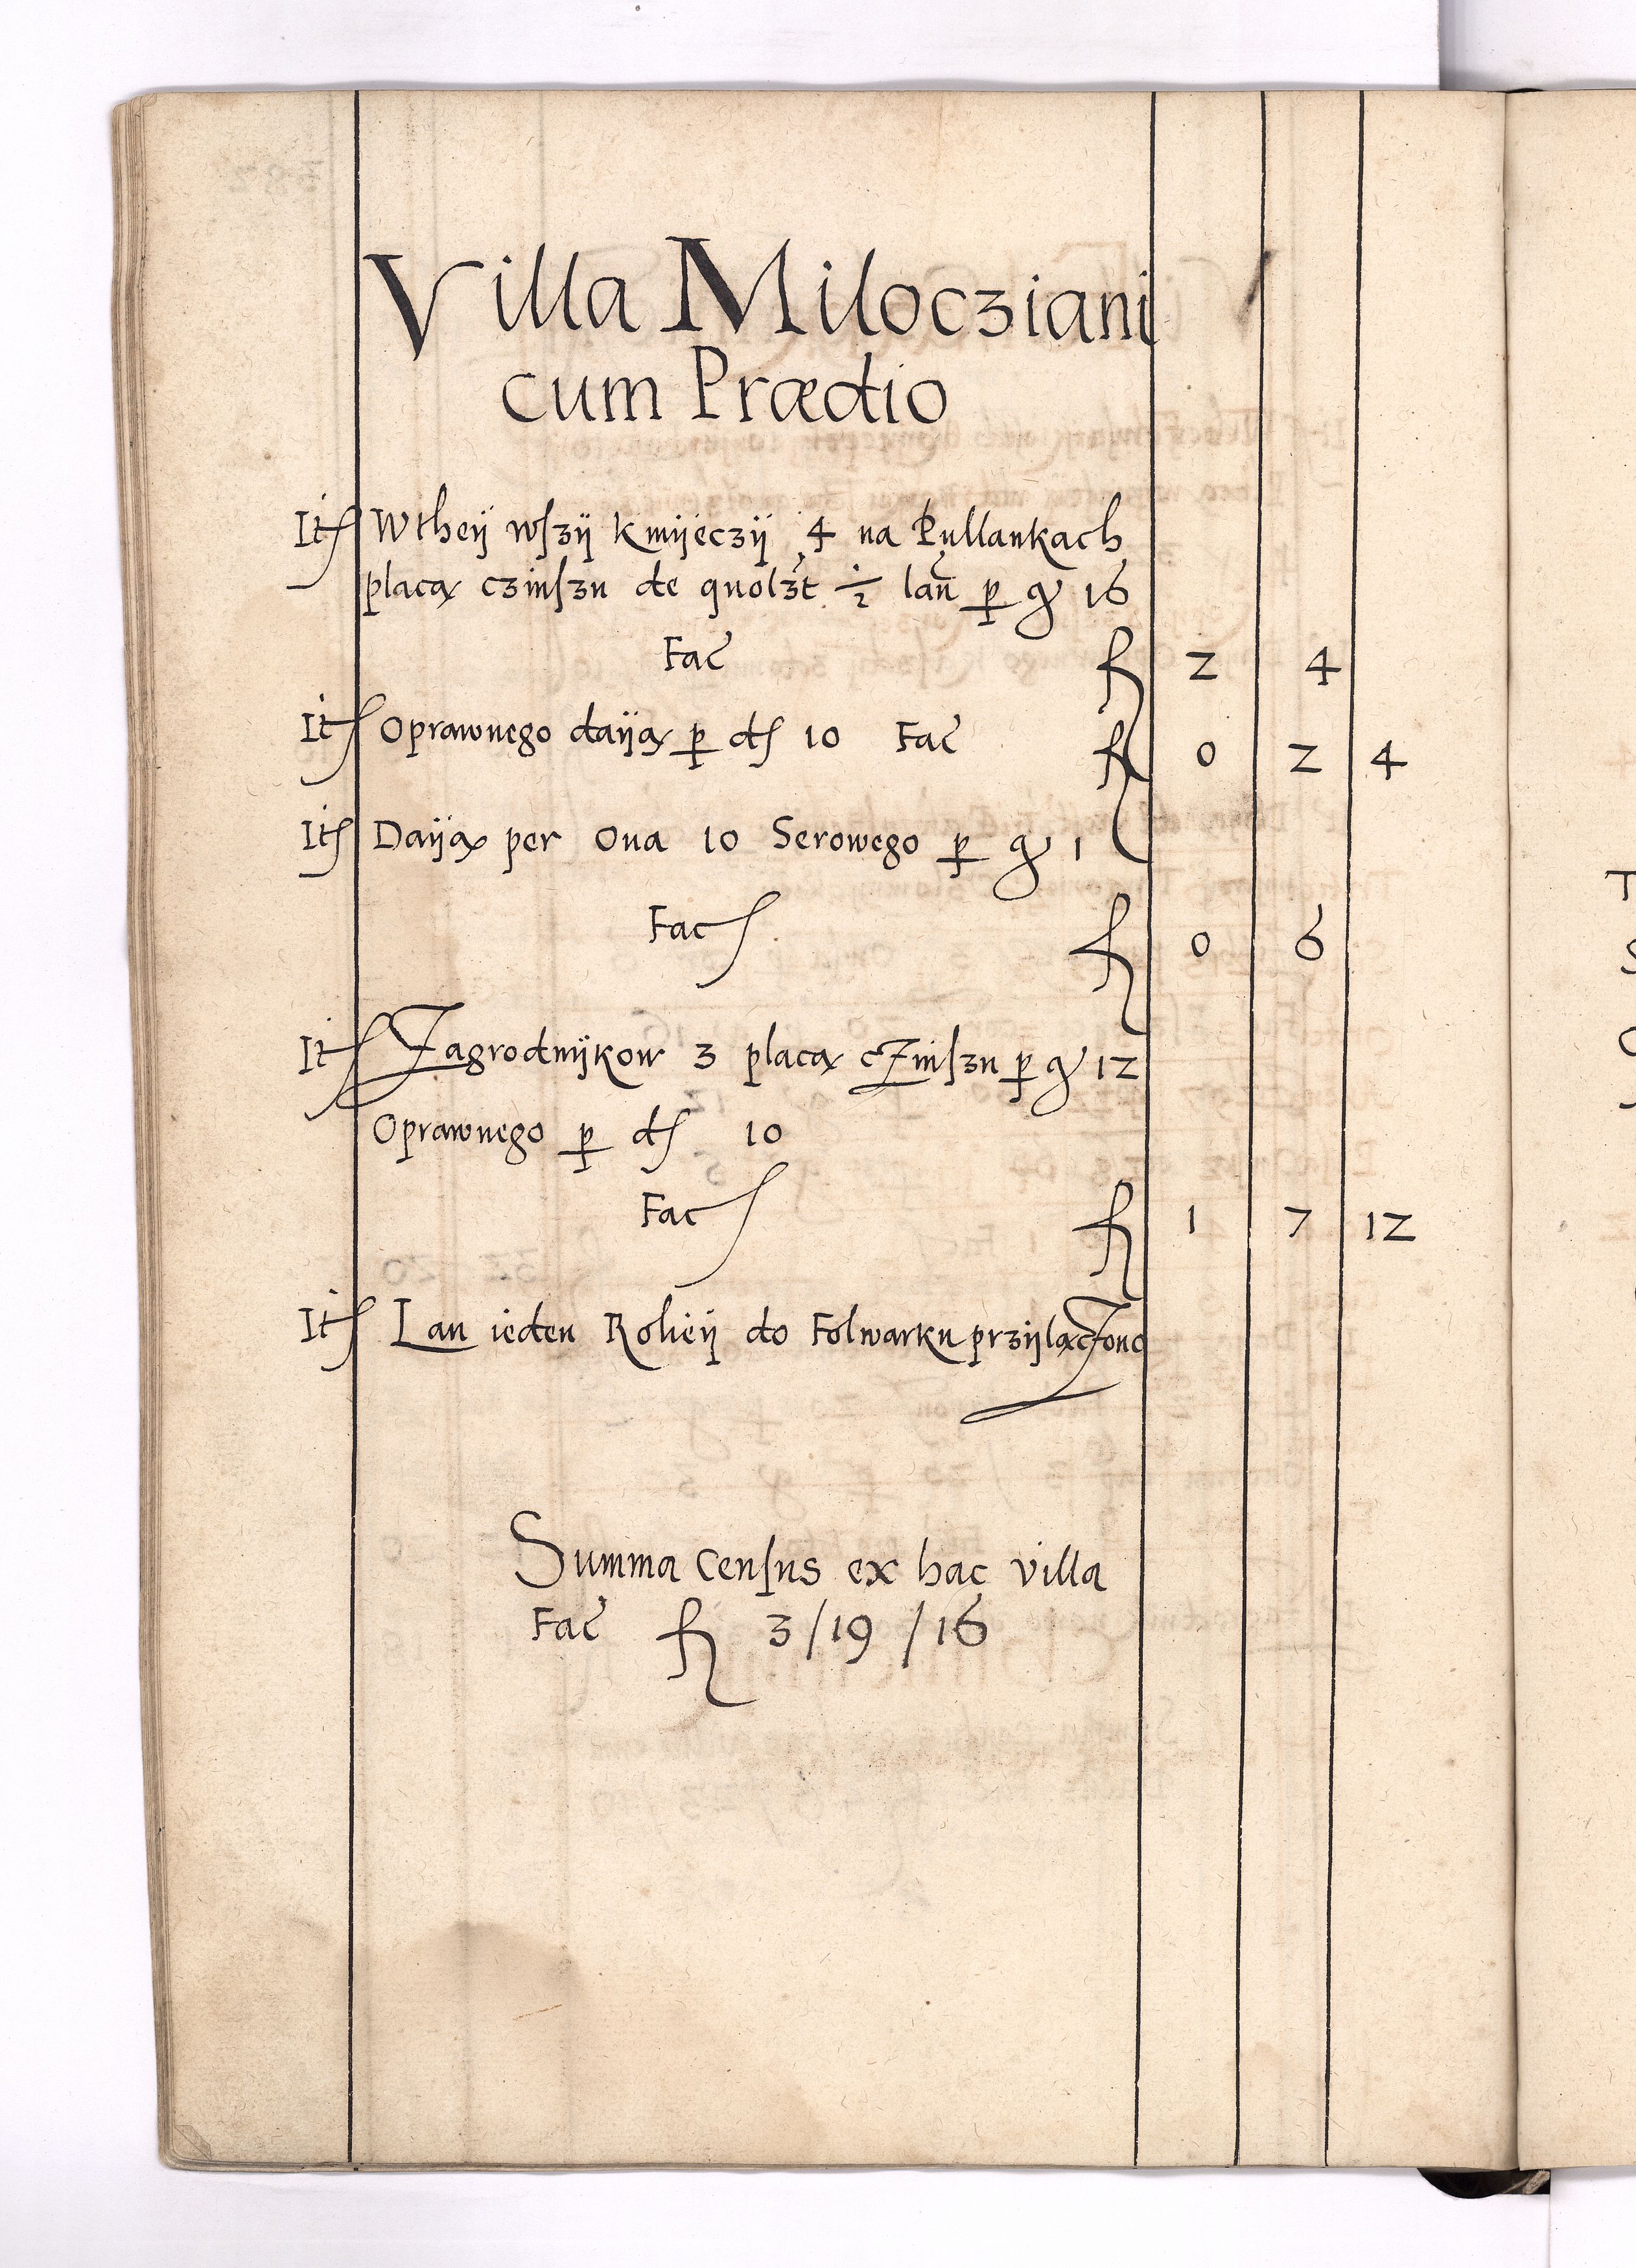 Villa Milocziani
cum Prædio
It Wtheÿ wſzÿ kmÿeczÿ 4 na Pullankach
placą czinſzu de quolzt ½ lan̄ p gr 16
Fac̃ fl 2 4
It Oprawnego daÿą p d 10 Fac̃ fl 0 2 4
It Daÿą per Oua 10 Serowego p gr 1
Fac fl 0 6
It Zagrodnÿkow 3 placą cZinſzu p gr 12
Oprawnego p d 10
Fac fl 1 7 12
It Lan ieden Roliéÿ do Folwarku przÿlączono
Summa Cenſus ex hac villa
Fac̃ fl 3/19/16